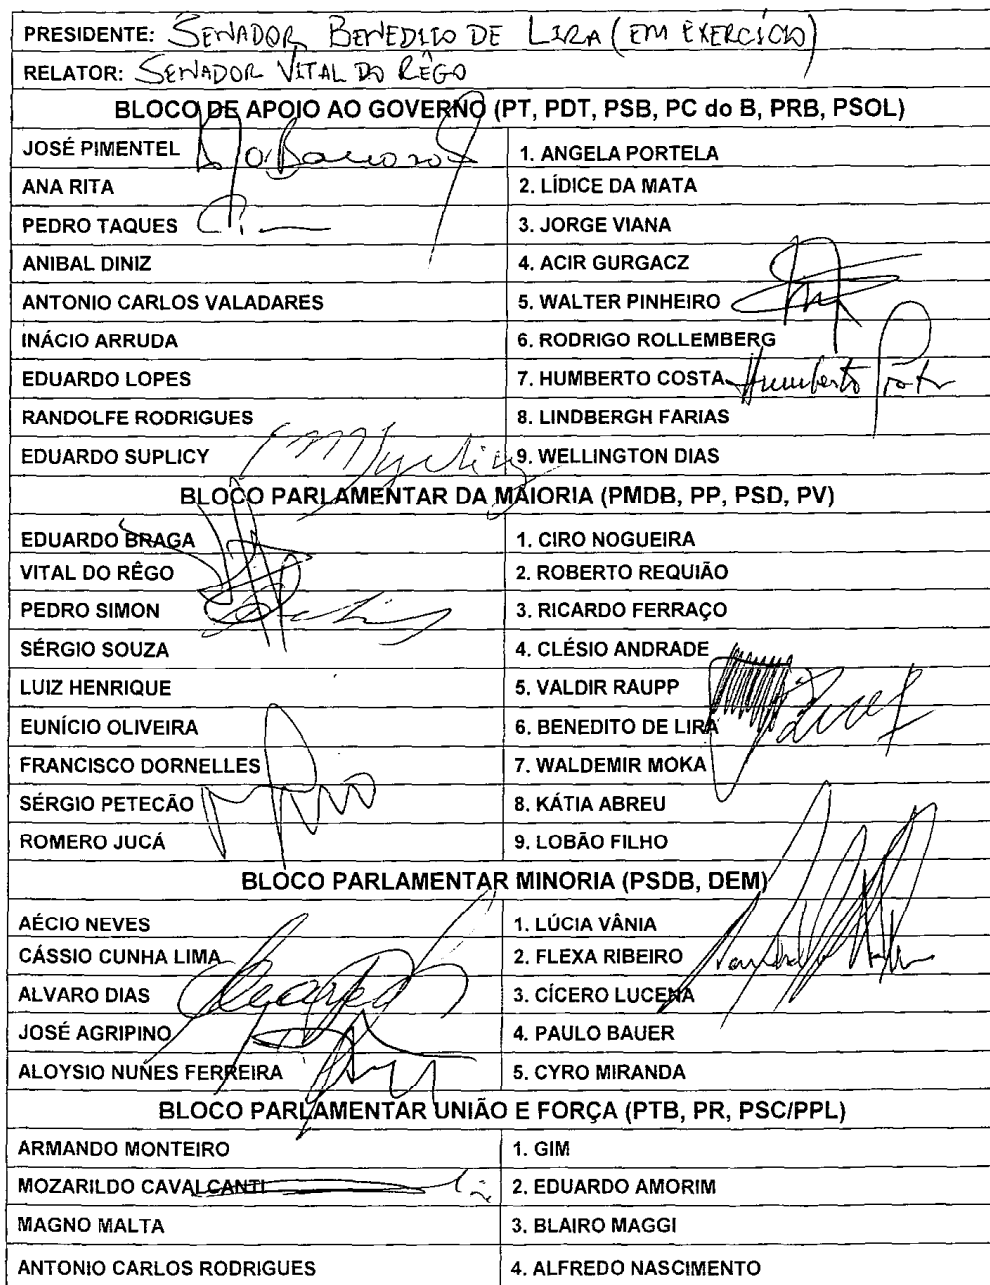 PRESIDENTE: SENADOR BENEDITO DE LIRA (EM EXERCÍCIO)
RELATOR: SENADOR VITAL DO RÊGO
BLOCO DE APOIO AO GOVERNO (PT, PDT, PSB, PC do B, PRB, PSOL)
JOSÉ PIMENTEL 1. ANGELA PORTELA
ANA RITA 2. LÍDICE DA MATA
PEDRO TAQUES 3. JORGE VIANA
ANIBAL DINIZ 4. ACIR GURGACZ
ANTONIO CARLOS VALADARES 5. WALTER PINHEIRO
INÁCIO ARRUDA 6. RODRIGO ROLLEMBERG
EDUARDO LOPES 7. HUMBERTO COSTA Humberto Costa
RANDOLFE RODRIGUES 8. LINDBERGH FARIAS
EDUARDO SUPLICY 9. WELLINGTON DIAS
BLOCO PARLAMENTAR DA MAIORIA (PMDB, PP, PSD, PV)
EDUARDO BRAGA 1. CIRO NOGUEIRA
VITAL DO RÊGO 2. ROBERTO REQUIÃO
PEDRO SIMON 3. RICARDO FERRAÇO
SÉRGIO SOUZA 4. CLÉSIO ANDRADE
LUIZ HENRIQUE 5. VALDIR RAUPP
EUNÍCIO OLIVEIRA 6. BENEDITO DE LIRA
FRANCISCO DORNELLES 7. WALDEMIR MOKA
SÉRGIO PETECÃO 8. KÁTIA ABREU
ROMERO JUCÁ 9. LOBÃO FILHO
BLOCO PARLAMENTAR MINORIA (PSDB, DEM)
AÉCIO NEVES 1. LÚCIA VÂNIA
CÁSSIO CUNHA LIMA 2. FLEXA RIBEIRO
ALVARO DIAS 3. CÍCERO LUCENA
JOSÉ AGRIPINO 4. PAULO BAUER
ALOYSIO NUNES FERREIRA 5. CYRO MIRANDA
BLOCO PARLAMENTAR UNIÃO E FORÇA (PTB, PR, PSC/PPL)
ARMANDO MONTEIRO 1. GIM
MOZARILDO CAVALCANTI 2. EDUARDO AMORIM
MAGNO MALTA 3. BLAIRO MAGGI
ANTONIO CARLOS RODRIGUES 4. ALFREDO NASCIMENTO